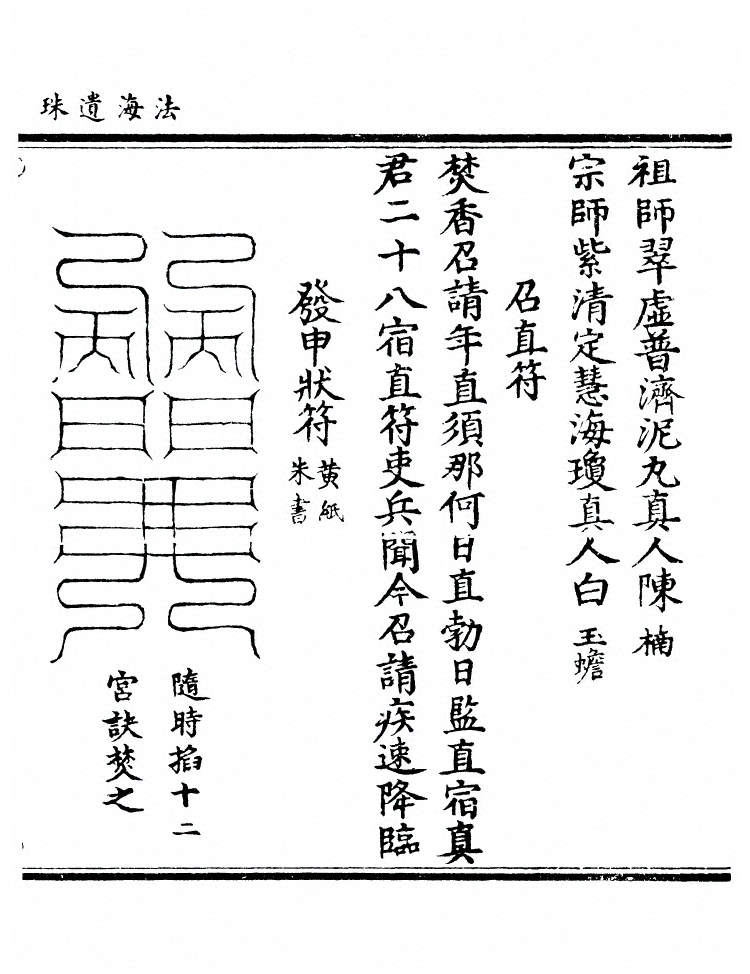 法海遺珠
祖師翠虛普濟泥丸真人陳楠
宗師紫清定慧海瓊真人白玉蟾
召直符
焚香召請年直須那何日直勃日監直宿真
君二十八宿直符吏兵聞今召請疾速降臨
發申狀符黃紙
朱書
隨時掐十二
宮訣焚之